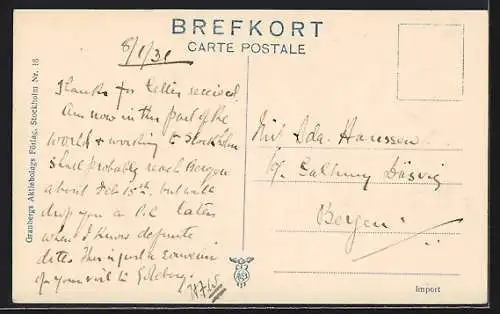 BREFKORT
CARTE POSTALE
8/1/31
Thanks for letter received.
Am now in this part of the
world & working to Stockholm
shall probably reach Bergen
about Feb 15th, but will
drop you a P.C. later
when I know definite
date. This is just a souvenir
of your visit to Goteborg.
18748
Miss Ada. Hanssen.
Bergen
Import
Granbergs Aktiebolags Förlag, Stockholm Nr. 18